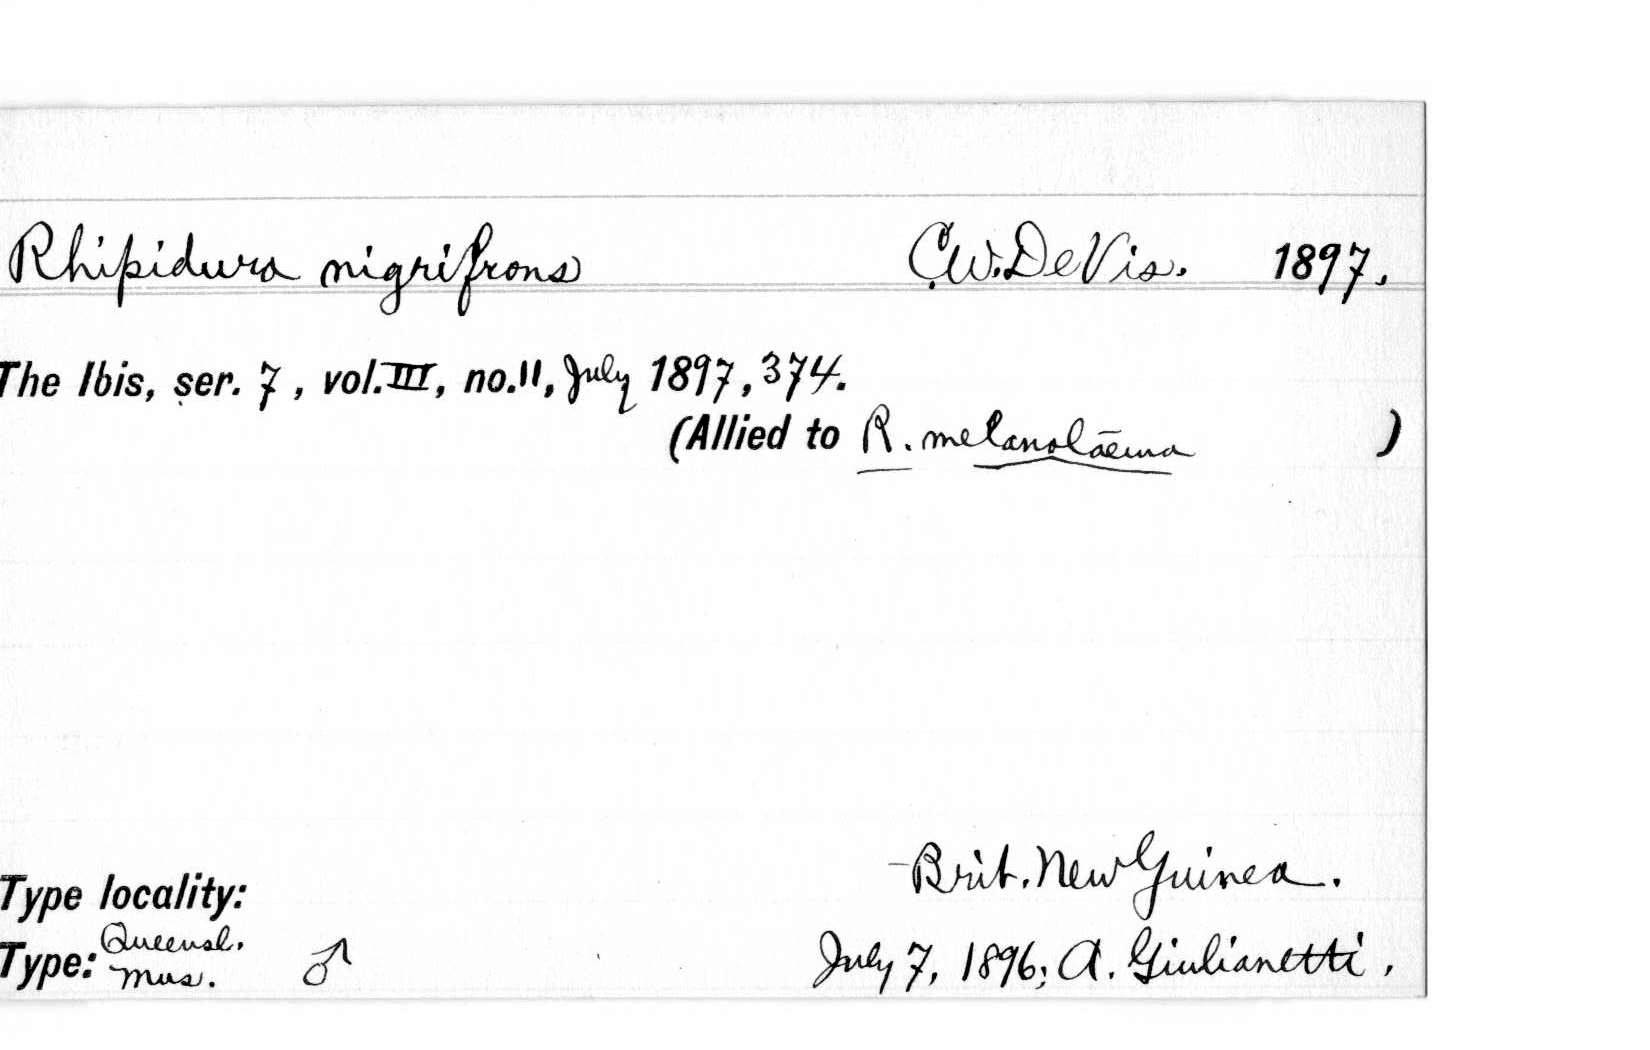 Rhipidura nigrifrons C.W. De Vis. 1897.
The Ibis, ser. 7, vol. III, no. 11, July 1897, 374.
(Allied to R. melanolaema )
Type locality: Brit. New Guinea.
Type: Queensl. Mus. ♂ July 7, 1896; A. Giulianetti.